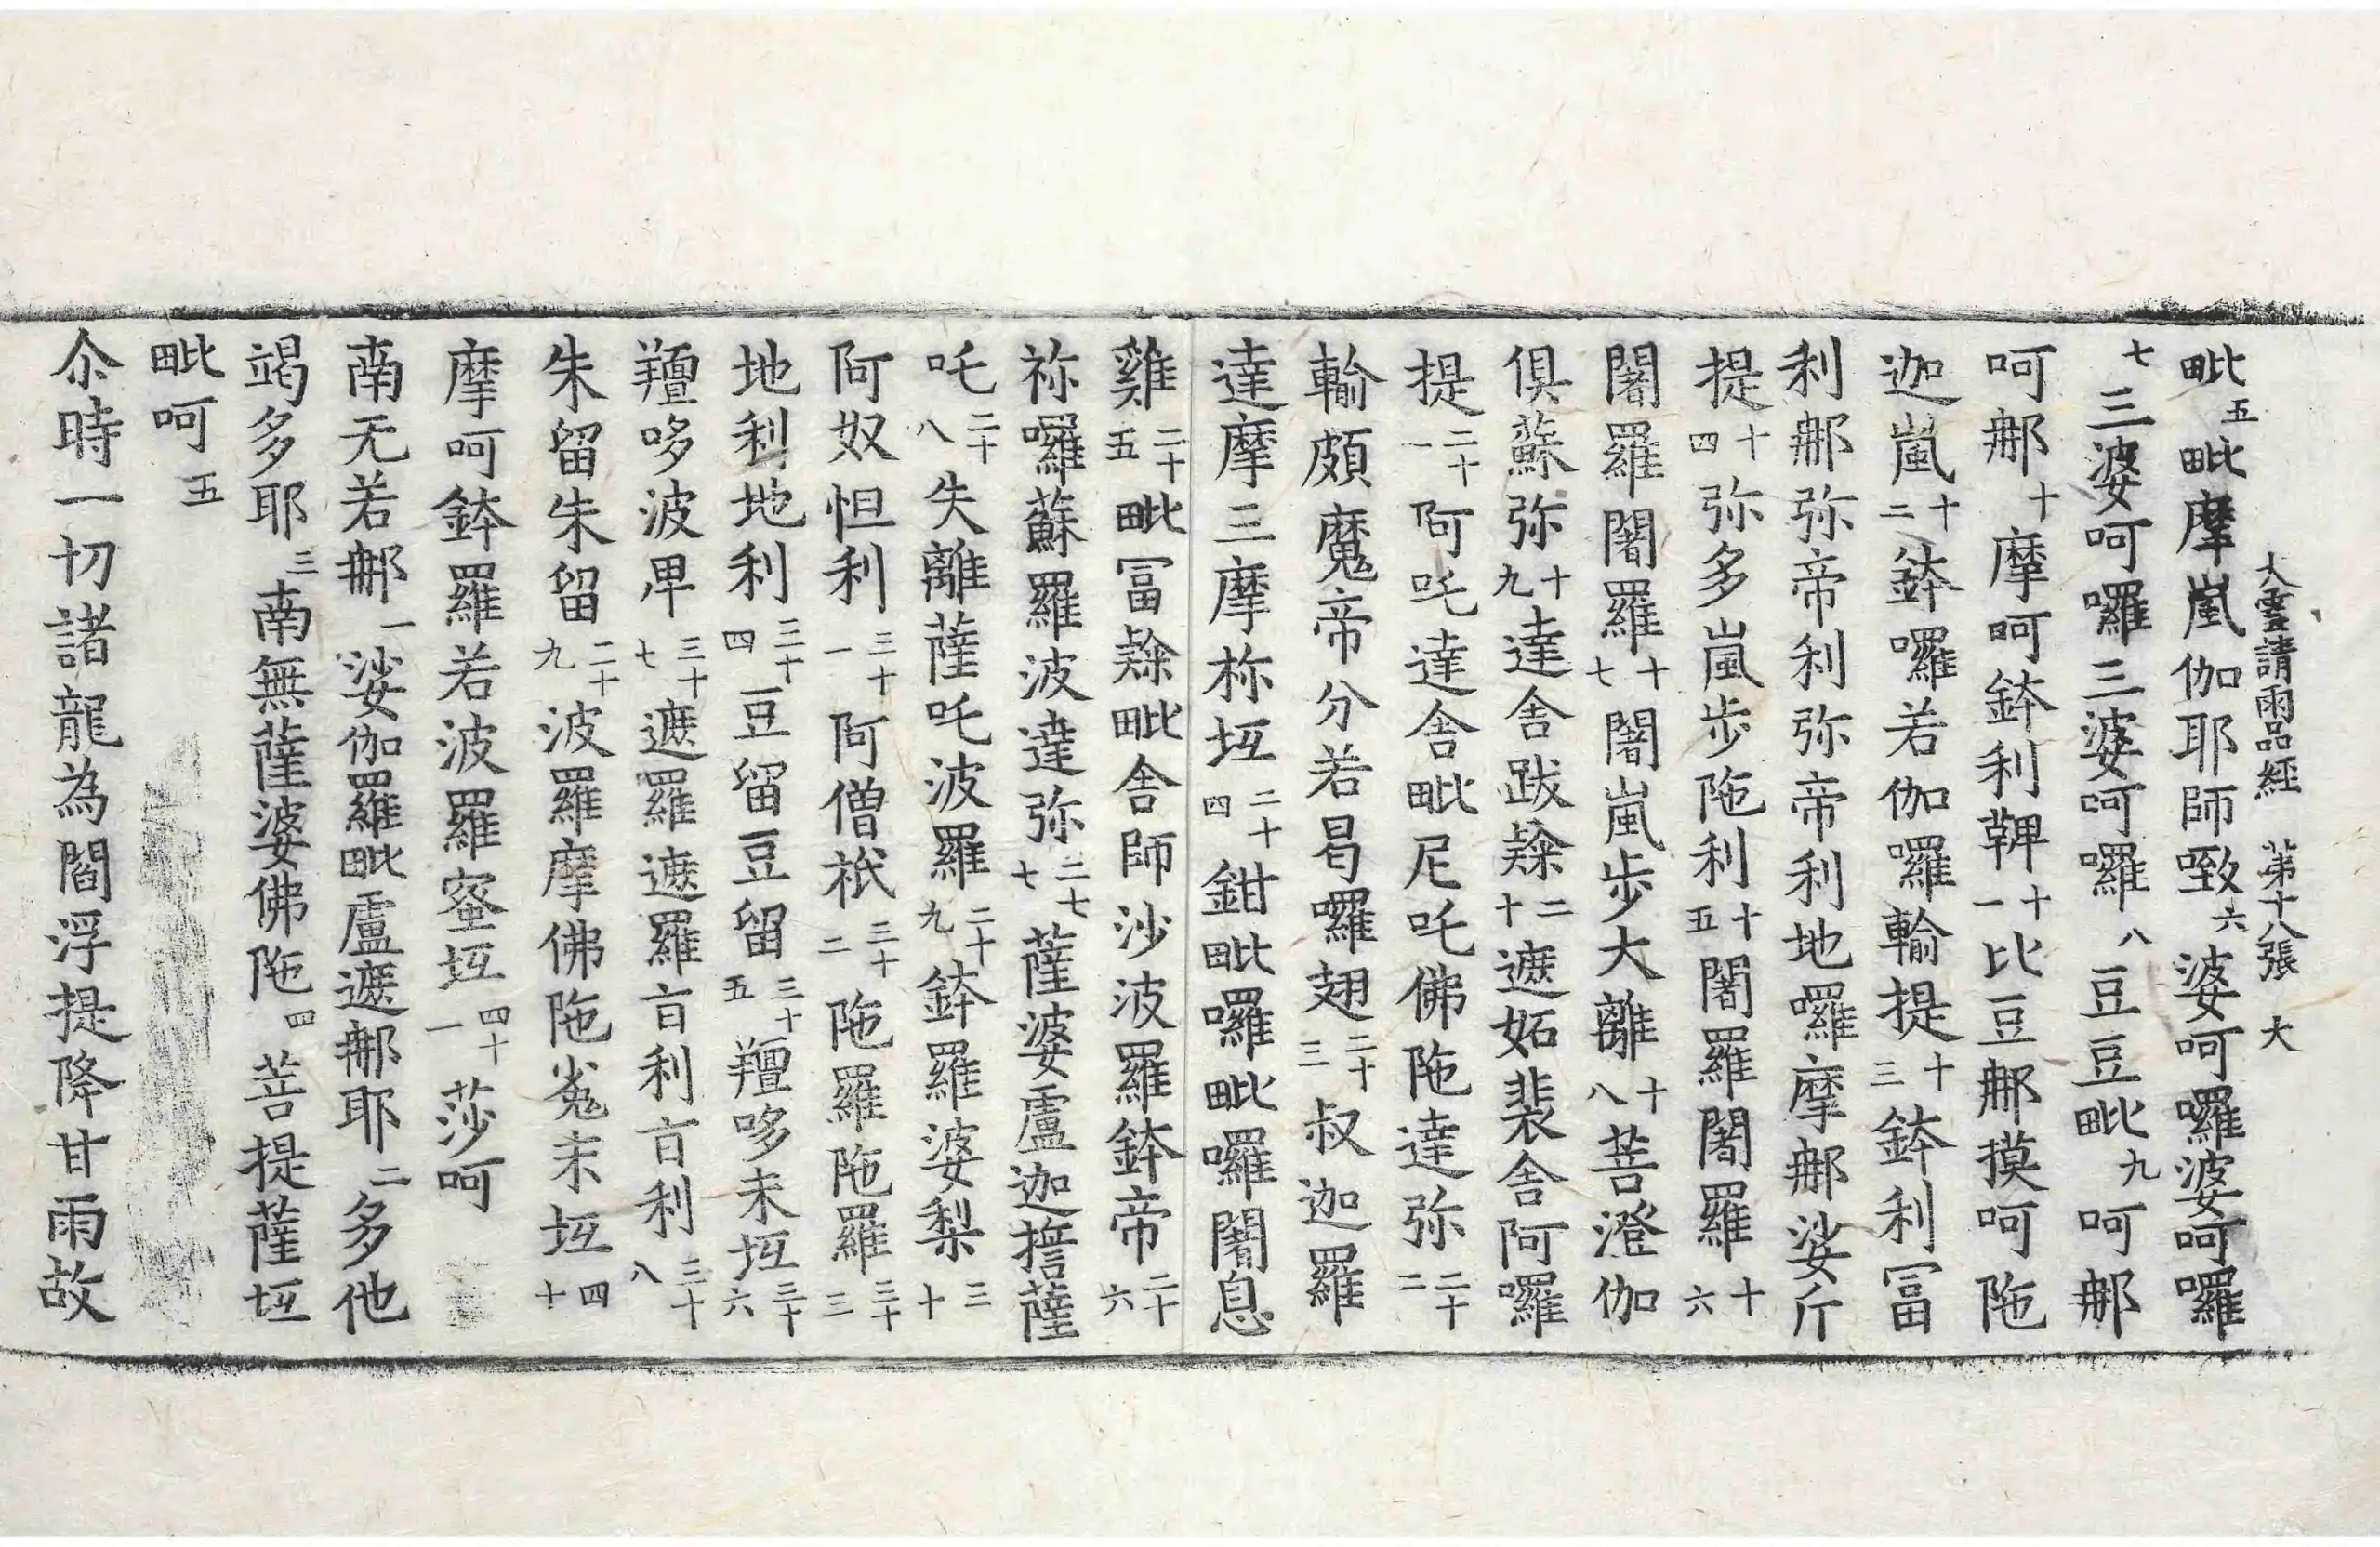 大雲請雨品經 第十八張 大
毗五毗摩嵐伽耶師㗌六婆呵囉婆呵囉
七三婆呵囉三婆呵囉八豆豆毗九呵那
呵那十摩呵鉢利鞞十一比豆那摸呵陁
迦嵐十二鉢囉若伽囉輸提十三鉢利冨
利那弥帝利弥帝利地囉摩那娑斤
提十四弥多嵐步陁利十五闍羅闍羅十六
闍羅闍羅十七闍嵐步大離十八菩澄伽
俱蘇弥十九達舍跋𨽻二十遮妬裴舍阿囉
提二十一阿吒達舍毗尼吒佛陁達弥二十二
輸頗魔帝分若曷囉翅二十三叔迦羅
達摩三摩柝坘二十四鉗毗囉毗囉闍息
雞二十五毗冨𨽻毗舍師沙波羅鉢帝二十六
祢囉蘇羅波達弥二七七薩婆盧迦㨜薩
吒二十八失離薩吒波羅二十九鉢羅婆梨三十
阿奴怛利三十一阿僧祇三十二陁羅陁羅三十三
地利地利三十四豆留豆留三十五羶哆未坘三十六
羶哆波𤰞三十七遮羅遮羅𠅘利𠅘利三十八
朱留朱留二十九波羅摩佛陁㝹末坘四十
摩呵鉢羅若波羅蜜坘四十一莎呵
南无若那一娑伽羅毗盧遮那耶二多他
竭多耶三南無薩婆佛陁四菩提薩坘
毗呵五
尒時一切諸龍為閻浮提降甘雨故